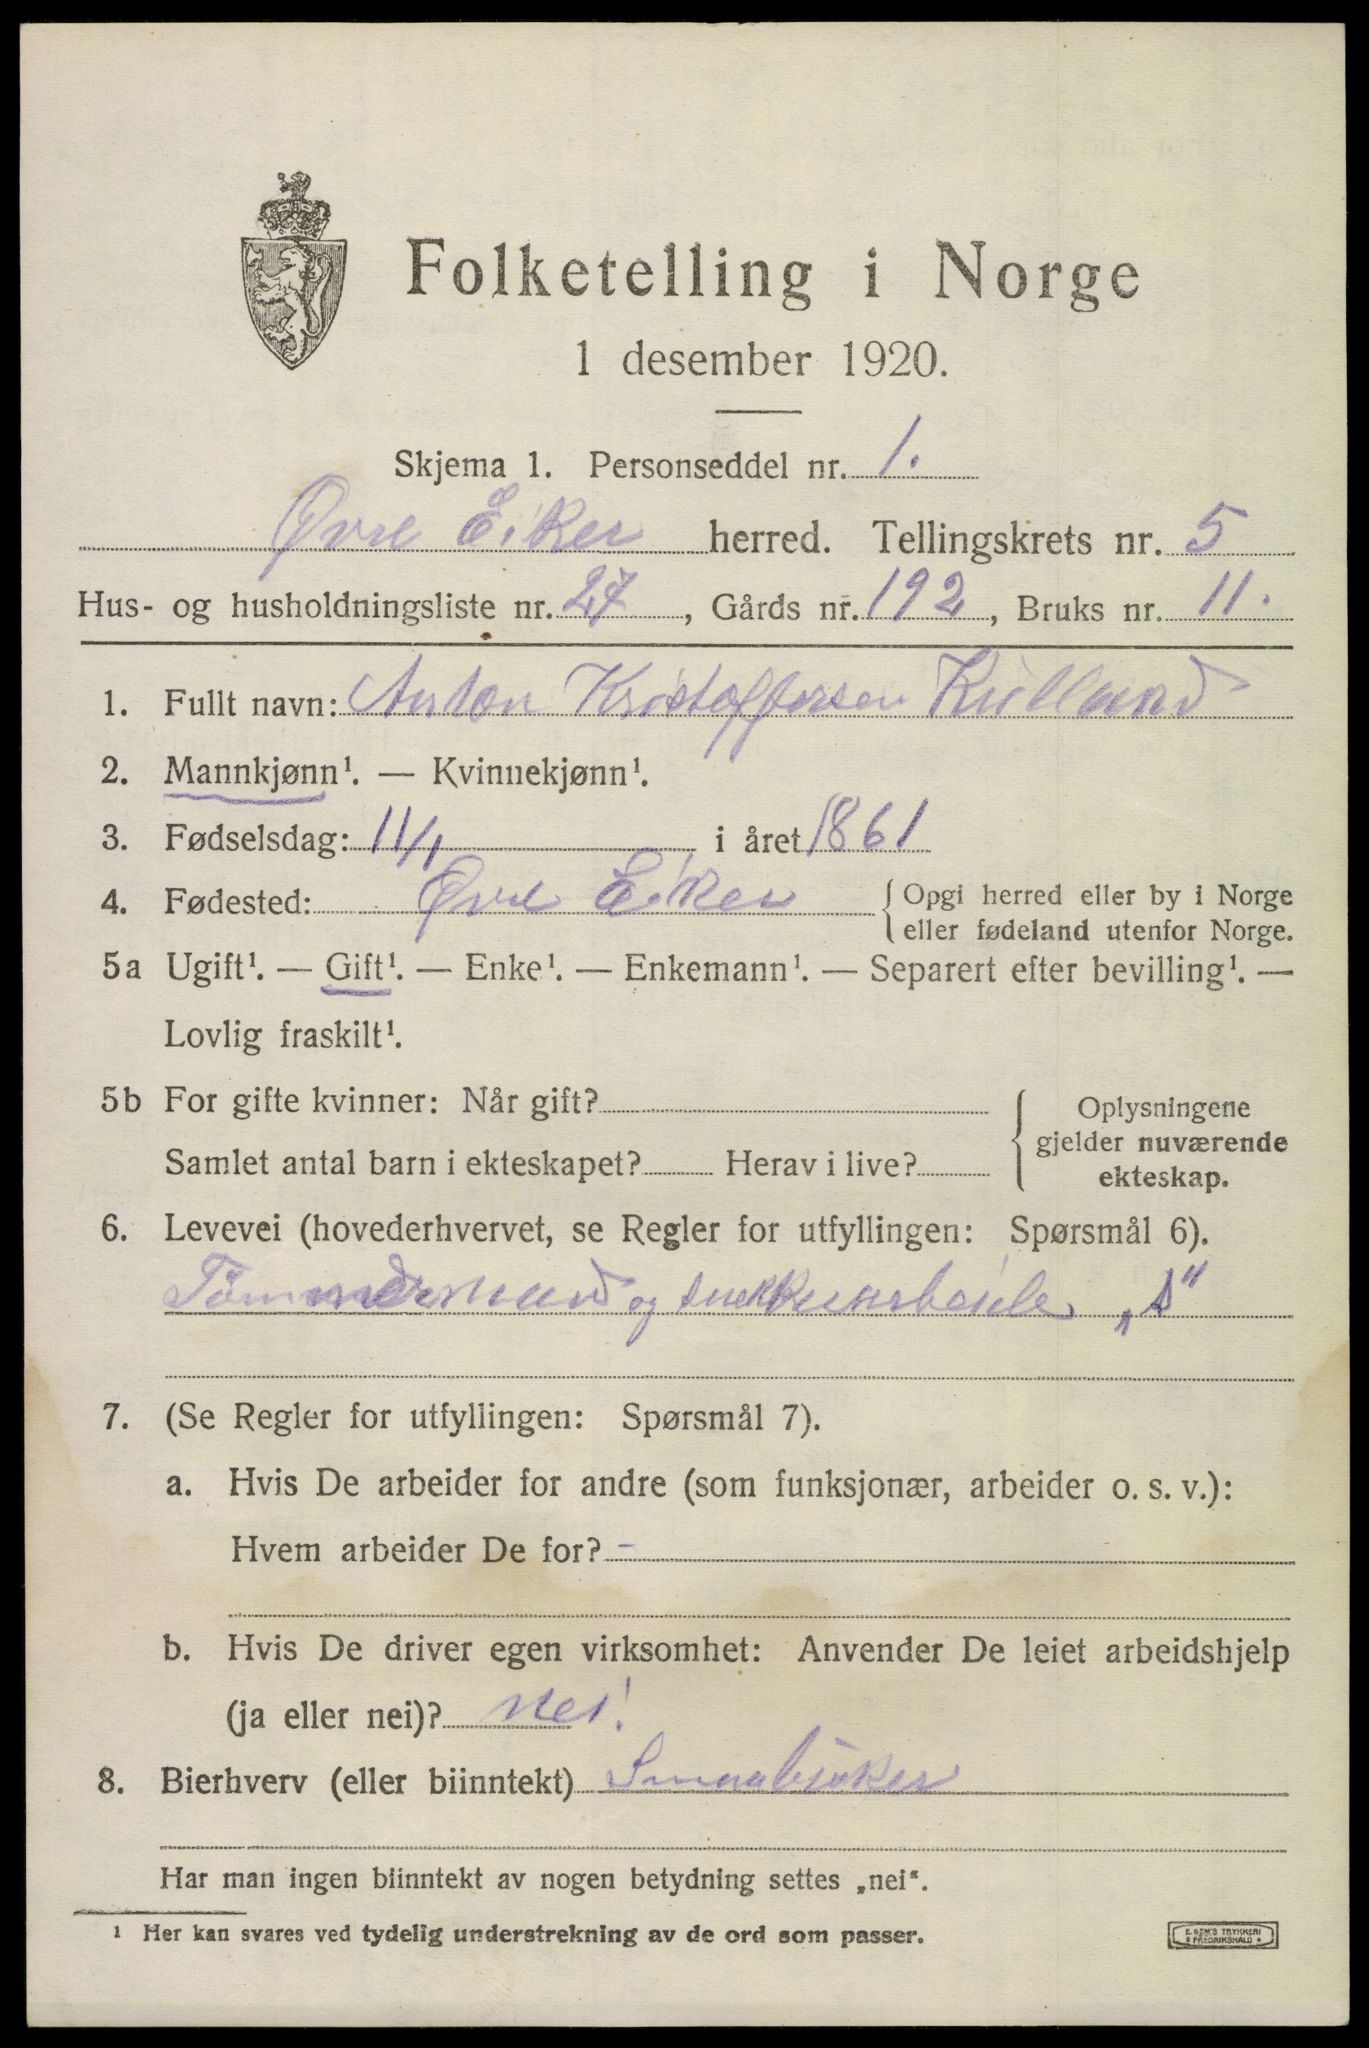 Folketelling i Norge
1 desember 1920.
Skjema 1. Personseddel nr. 1.
Øvre Eiker herred. Tellingskrets nr. 5
Hus- og husholdningsliste nr. 27, Gårds nr. 192, Bruks nr. 11.
1. Fullt navn: Anton Kristoffersen
2. Mannkjønn¹. — Kvinnekjønn¹.
3. Fødselsdag: 11/1 i året 1861
4. Fødested: Øvre Eiker { Opgi herred eller by i Norge
eller fødeland utenfor Norge.
5a Ugift¹. — Gift¹. — Enke¹. — Enkemann¹. — Separert efter bevilling¹. —
Lovlig fraskilt¹.
5b For gifte kvinner: Når gift?
Samlet antal barn i ekteskapet? Herav i live?
Oplysningene
gjelder nuværende
ekteskap.
6. Levevei (hovederhvervet, se Regler for utfyllingen: Spørsmål 6).
og „s"
7. (Se Regler for utfyllingen: Spørsmål 7).
a. Hvis De arbeider for andre (som funksjonær, arbeider o. s. v.):
Hvem arbeider De for? -
b. Hvis De driver egen virksomhet: Anvender De leiet arbeidshjelp
(ja eller nei)? nei!
8. Bierhverv (eller biinntekt) Smaabruker
Har man ingen biinntekt av nogen betydning settes „nei".
¹ Her kan svares ved tydelig understrekning av de ord som passer.
E. SEM'S TRYKKERI
FREDRIKSHALD